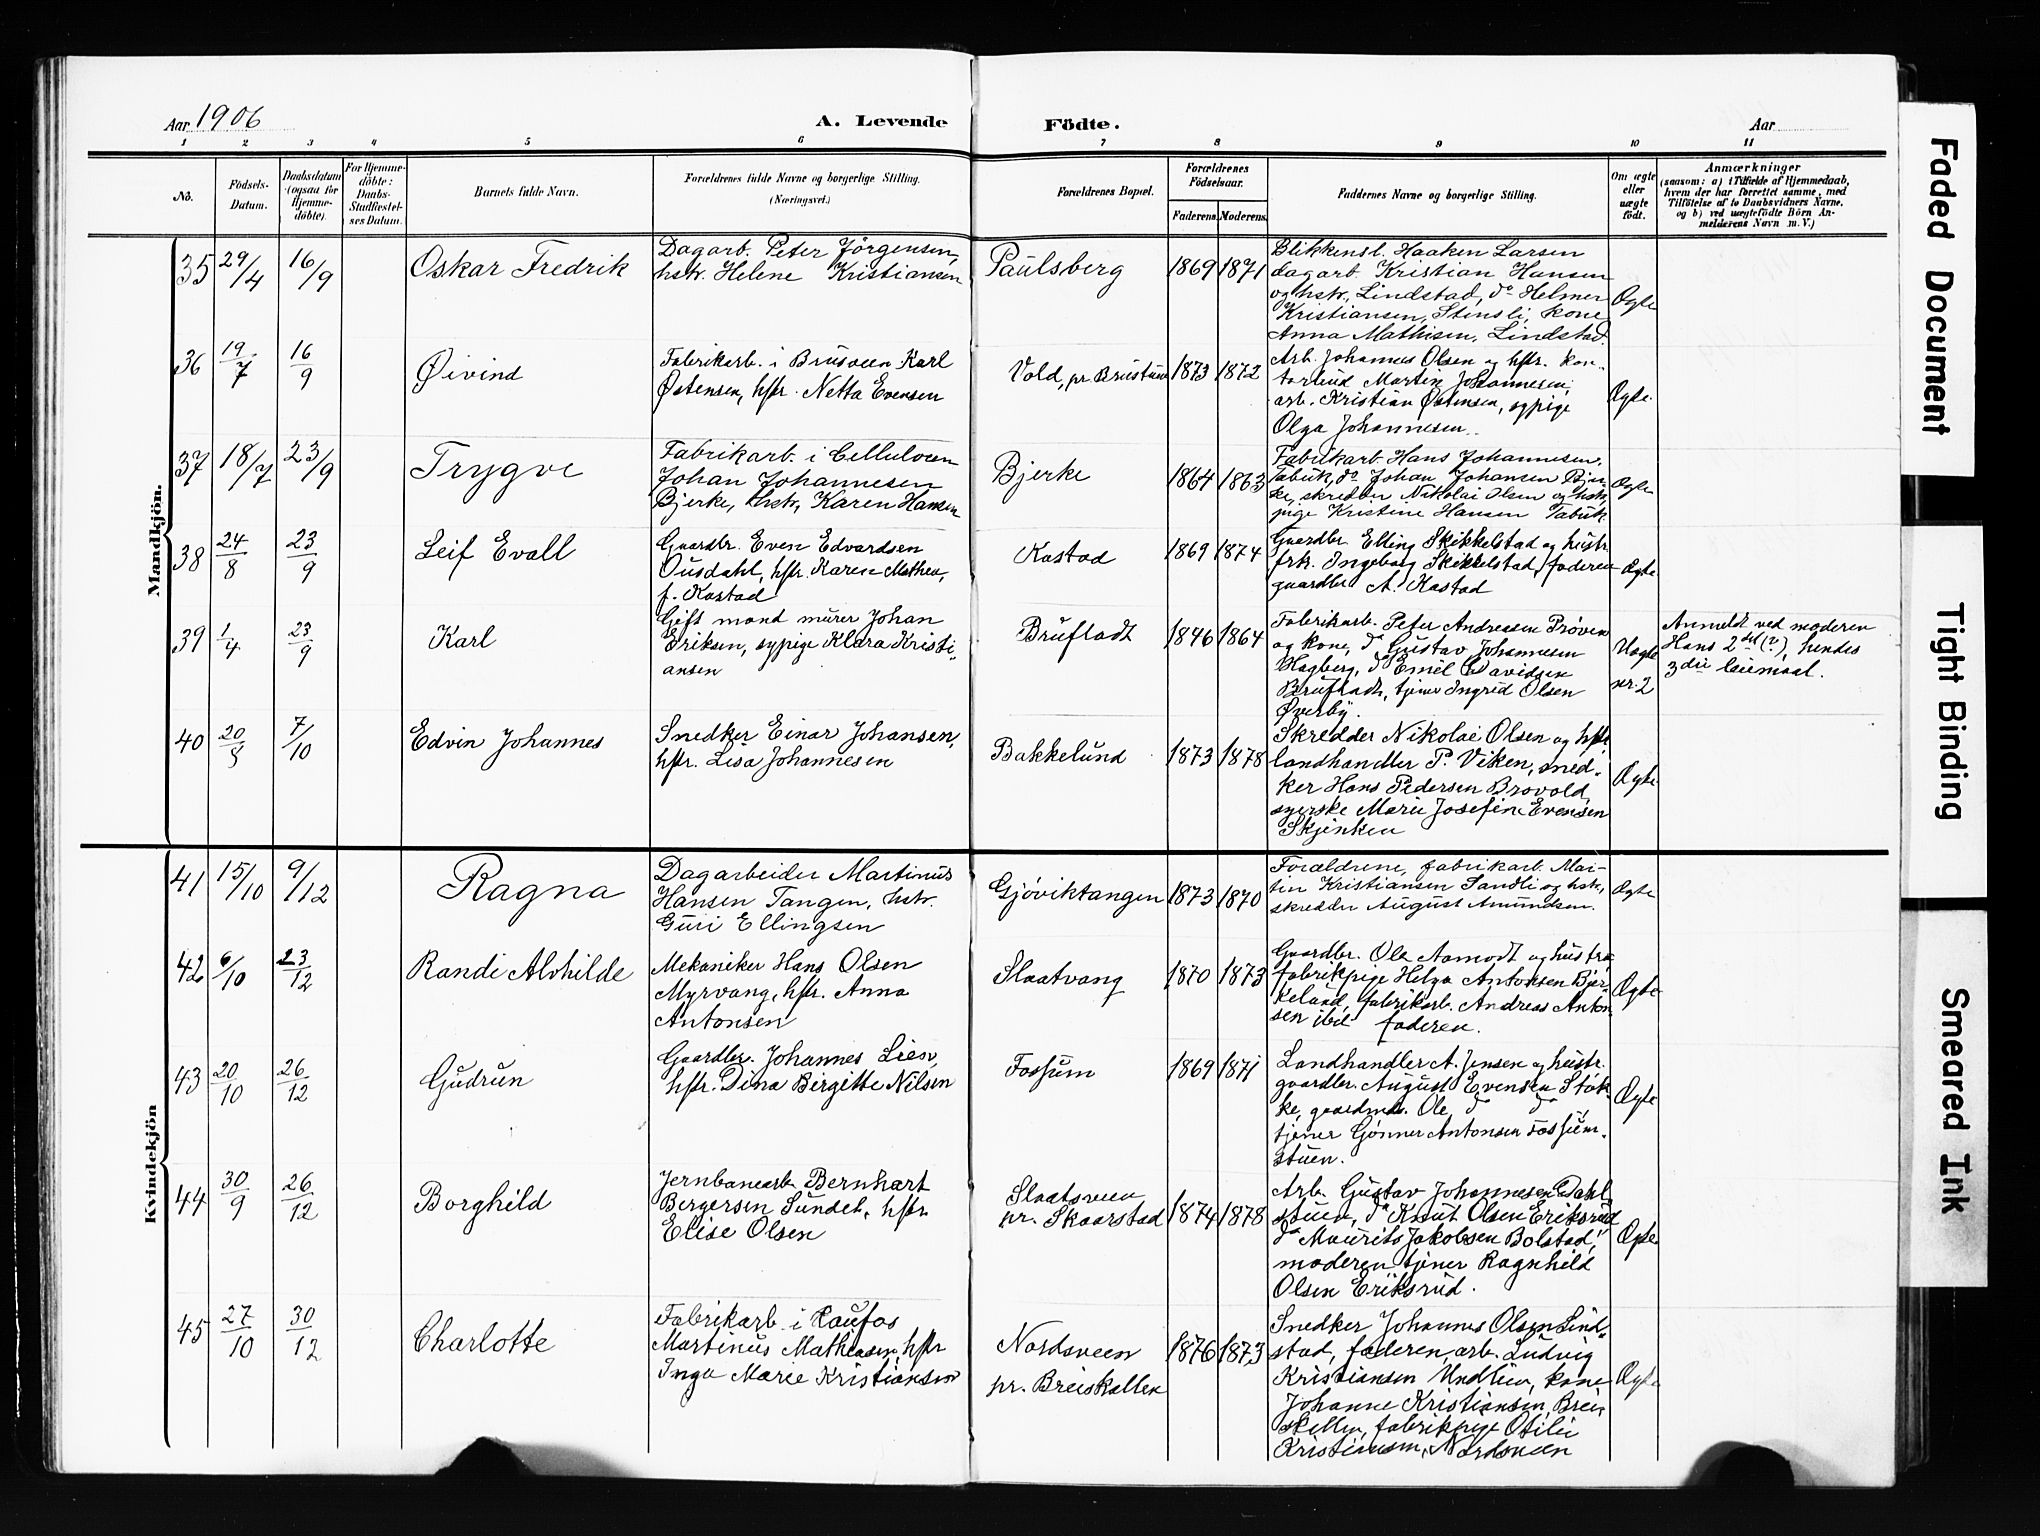 Aar 1906
A. Levende Födte.
Aar
1 2 3 4 5 6 7 8 9 10 11
No.
Födsels-
Datum.
Daabsdatum
(ogsaa for
Hjemme-
döbte).
For Hjemme-
döbte:
Daabs-
Stadfæstel-
ses Datum.
Barnets fulde Navn.
Forældrenes fulde Navne og borgerlige Stilling.
(Næringsvei.)
Forældrenes Bopæl.
Forældrenes
Födselsaar.
Faderens. Moderens.
Faddernes Navne og borgerlige Stilling.
Om ægte
eller
uægte
födt.
Anmærkninger
(saasom: a) i Tilfælde af Hjemmedaab,
hvem der har forrettet samme, med
Tilföielse af to Daabsvidners Navne,
og b) ved uægtefödte Börn An-
melderens Navn m. V.)
Mandkjön.
35 29/4 16/9 Oskar Fredrik
Dagarb. Peter Jörgensen,
hstr. Helene Kristiansen
Paulsberg 1869 1871
Blikkensl. Haaken Larsen
dagarb. Kristian Hansen
og hstr., Lindstad, do Helmer
Kristiansen, Stensli, kone
Anna Mathisen, Lindstad.
Ægte
36 19/7 16/9 Øivind
Fabrikarb. i Brusveen Karl
Østensen, hstr. Netta Evensen
Vold, pr. Brustuen 1873 1872
Arb. Johannes Olsen og hstr. kon-
torbud Martin Johannesen,
arb. Kristian Østensen, sypige
Olga Johannesen.
Ægte.
37 18/7 23/9 Trygve
Fabrikarb. i Celluloeen
Johan Johannesen
Bjerke, hstr. Karen Hansen
Bjerke 1864 1863
Fabrikarb. Hans Johannesen,
Tabuk, do Johan Johansen Bjer-
ke, skredder Nikolai Olsen og hstr.
pige Kristine Hansen Tabuk
Ægte
38 24/8 23/9 Leif Evall
Gaardbr. Even Edvardsen
Ousdahl, hstr. Karen Mathea,
f. Kastad
Kastad 1869 1874
Gaardbr. Elling Skikkelstad og hustr.
frk. Ingeborg Skikkelstad, faderen
gaardbr. A. Kastad
Ægte.
39 1/4 23/9 Karl
Gift mand murer Johan
Eriksen, sypige Klara Kristi-
ansen
Brufladt 1846 1864
Fabrikarb. Peter Andreasen Prøven
og kone, do Gustav Johannesen
Hagberg, do Emil Davidsen
Brufladt, tjener Ingrid Olsen
Øverby.
Uægte
nr. 2
Anmeldt ved moderen
Hans 2det (?), hendes
3die leiermaal.
40 20/8 7/10 Edvin Johannes
Snedker Einar Johansen,
hstr. Lisa Johannesen
Bakkelund 1873 1878
Skredder Nikolai Olsen og hstr.
landhandler P. Viken, sned-
ker Hans Pedersen Brovold,
syerske Marie Josefine Evensen
Skjenken
Ægte.
Kvindekjön
41 15/10 9/12 Ragna
Dagarbeider Martinus
Hansen Tangen, hstr.
Guri Ellingsen
Gjøviktangen 1873 1870
Forældrene, fabrikarb. Mar-
tin Kristiansen Sandli og hstr,
skredder August Amundsen.
Ægte
42 6/10 23/12 Randi Alvhilde
Mekaniker Hans Olsen
Myrvang, hstr. Anna
Antonsen
Slaatvang 1870 1873
Gaardbr. Ole Aamodt og hustru
fabrikpige Helga Antonsen Bjer-
keland, fabrikarb. Andreas Anton-
sen ibd faderen.
Ægte.
43 20/10 26/12 Gudrun
Gaardbr. Johannes Lien,
hstr. Dina Birgitte Nilsen
Fossum 1869 1871
Landhandler A. Jensen og hustr.
gaardbr. August Evensen Støk-
ke, gaardmd. Ole do do
tjener Gønner Antonsen Fossum-
stuen.
Ægte
44 30/9 26/12 Borghild
Jernbanearb. Bernhart
Bergersen Sundet, hstr.
Elise Olsen
Slaatsveen
pr. Skaarstad 1874 1878
Arb. Gustav Johannesen Dahl-
stuen, do Knut Olsen Eriksrud
do Maurits Jakobsen Bolstad,
moderen, tjener Ragnhild
Olsen Eriksrud.
Ægte.
45 27/10 30/12 Charlotte
Fabrikarb. i Raufos
Martinus Mathiasen, hstr
Inga Marie Kristiansen
Nordsveen
pr. Breiskallen 1876 1873
Snedker Johannes Olsen Lind-
stad, faderen, arb. Ludvig
Kristiansen Undlien, kone
Johanne Kristiansen, Brei-
skallen, fabrikpige Otilie
Kristiansen, Nordsveen
Ægte
Faded Document
Tight Binding
Smeared Ink